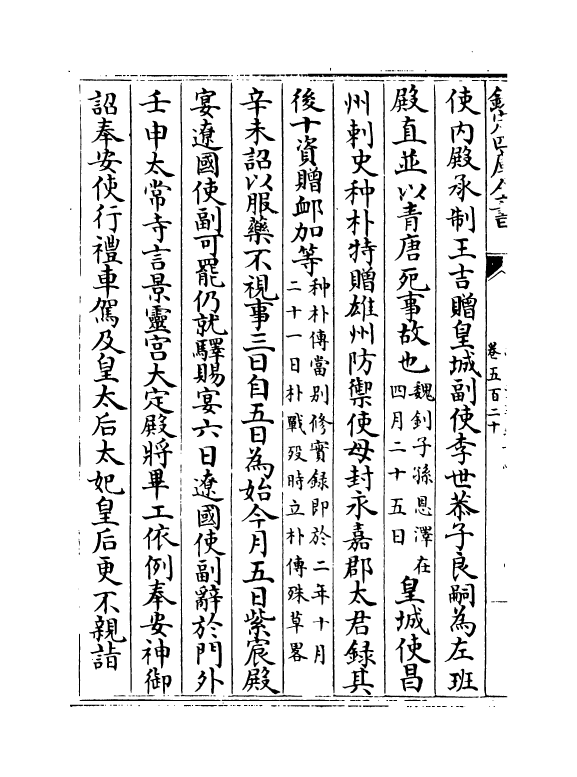 卷五百二十
使内殿承制王吉贈皇城副使李世恭子良嗣為左班
殿直並以青唐死事故也魏釗子孫恩澤在四月二十五日皇城使昌
州刺史种朴特贈雄州防禦使母封永嘉郡太君録其
後十資贈䘏加等种朴傳當别修實録即於二年十月二十一日朴戰殁時立朴傳殊草畧
辛未詔以服藥不視事三日自五日為始今月五日紫宸殿
宴遼國使副可罷仍就驛賜宴六日遼國使副辭於門外
壬申太常寺言景靈宫大定殿將畢工依例奉安神御
詔奉安使行禮車駕及皇太后太妃皇后更不親詣